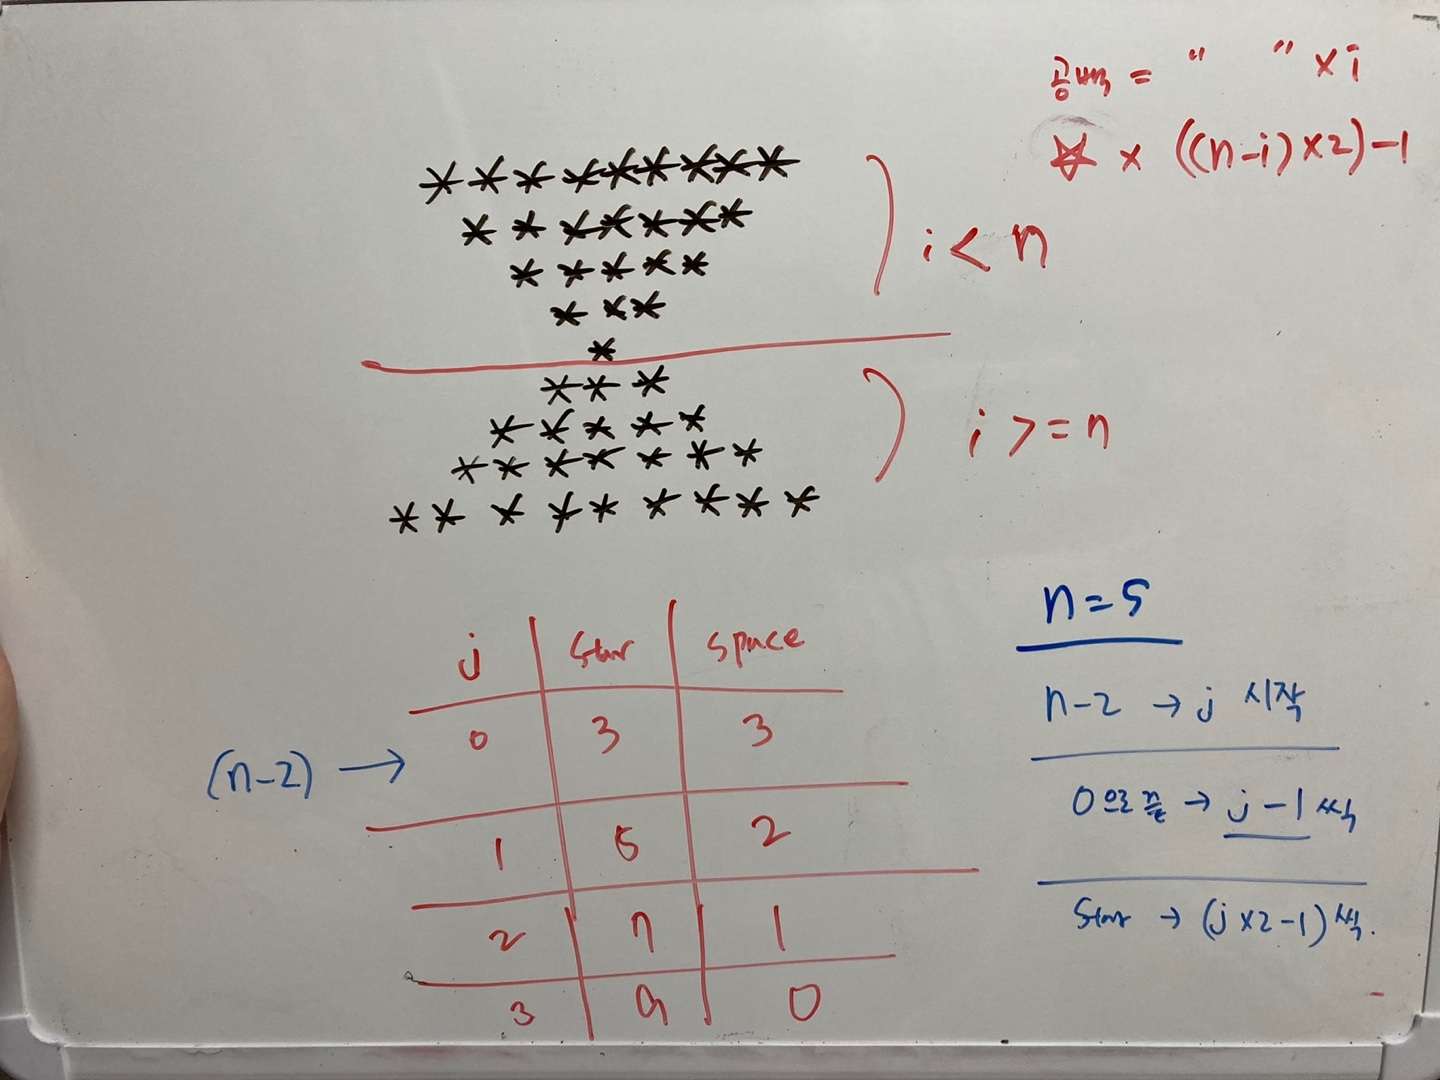 공백 = " " × i
☆ × ((n-i)×2)-1
*********
*******
*****
***
*
***
*****
*******
*********
i < n
i >= n
j star space
0 3 3
1 5 2
2 7 1
3 9 0
(n-2) →
n=5
n-2 → j 시작
0으로 → j-1 씩
star → (j×2-1)씩.